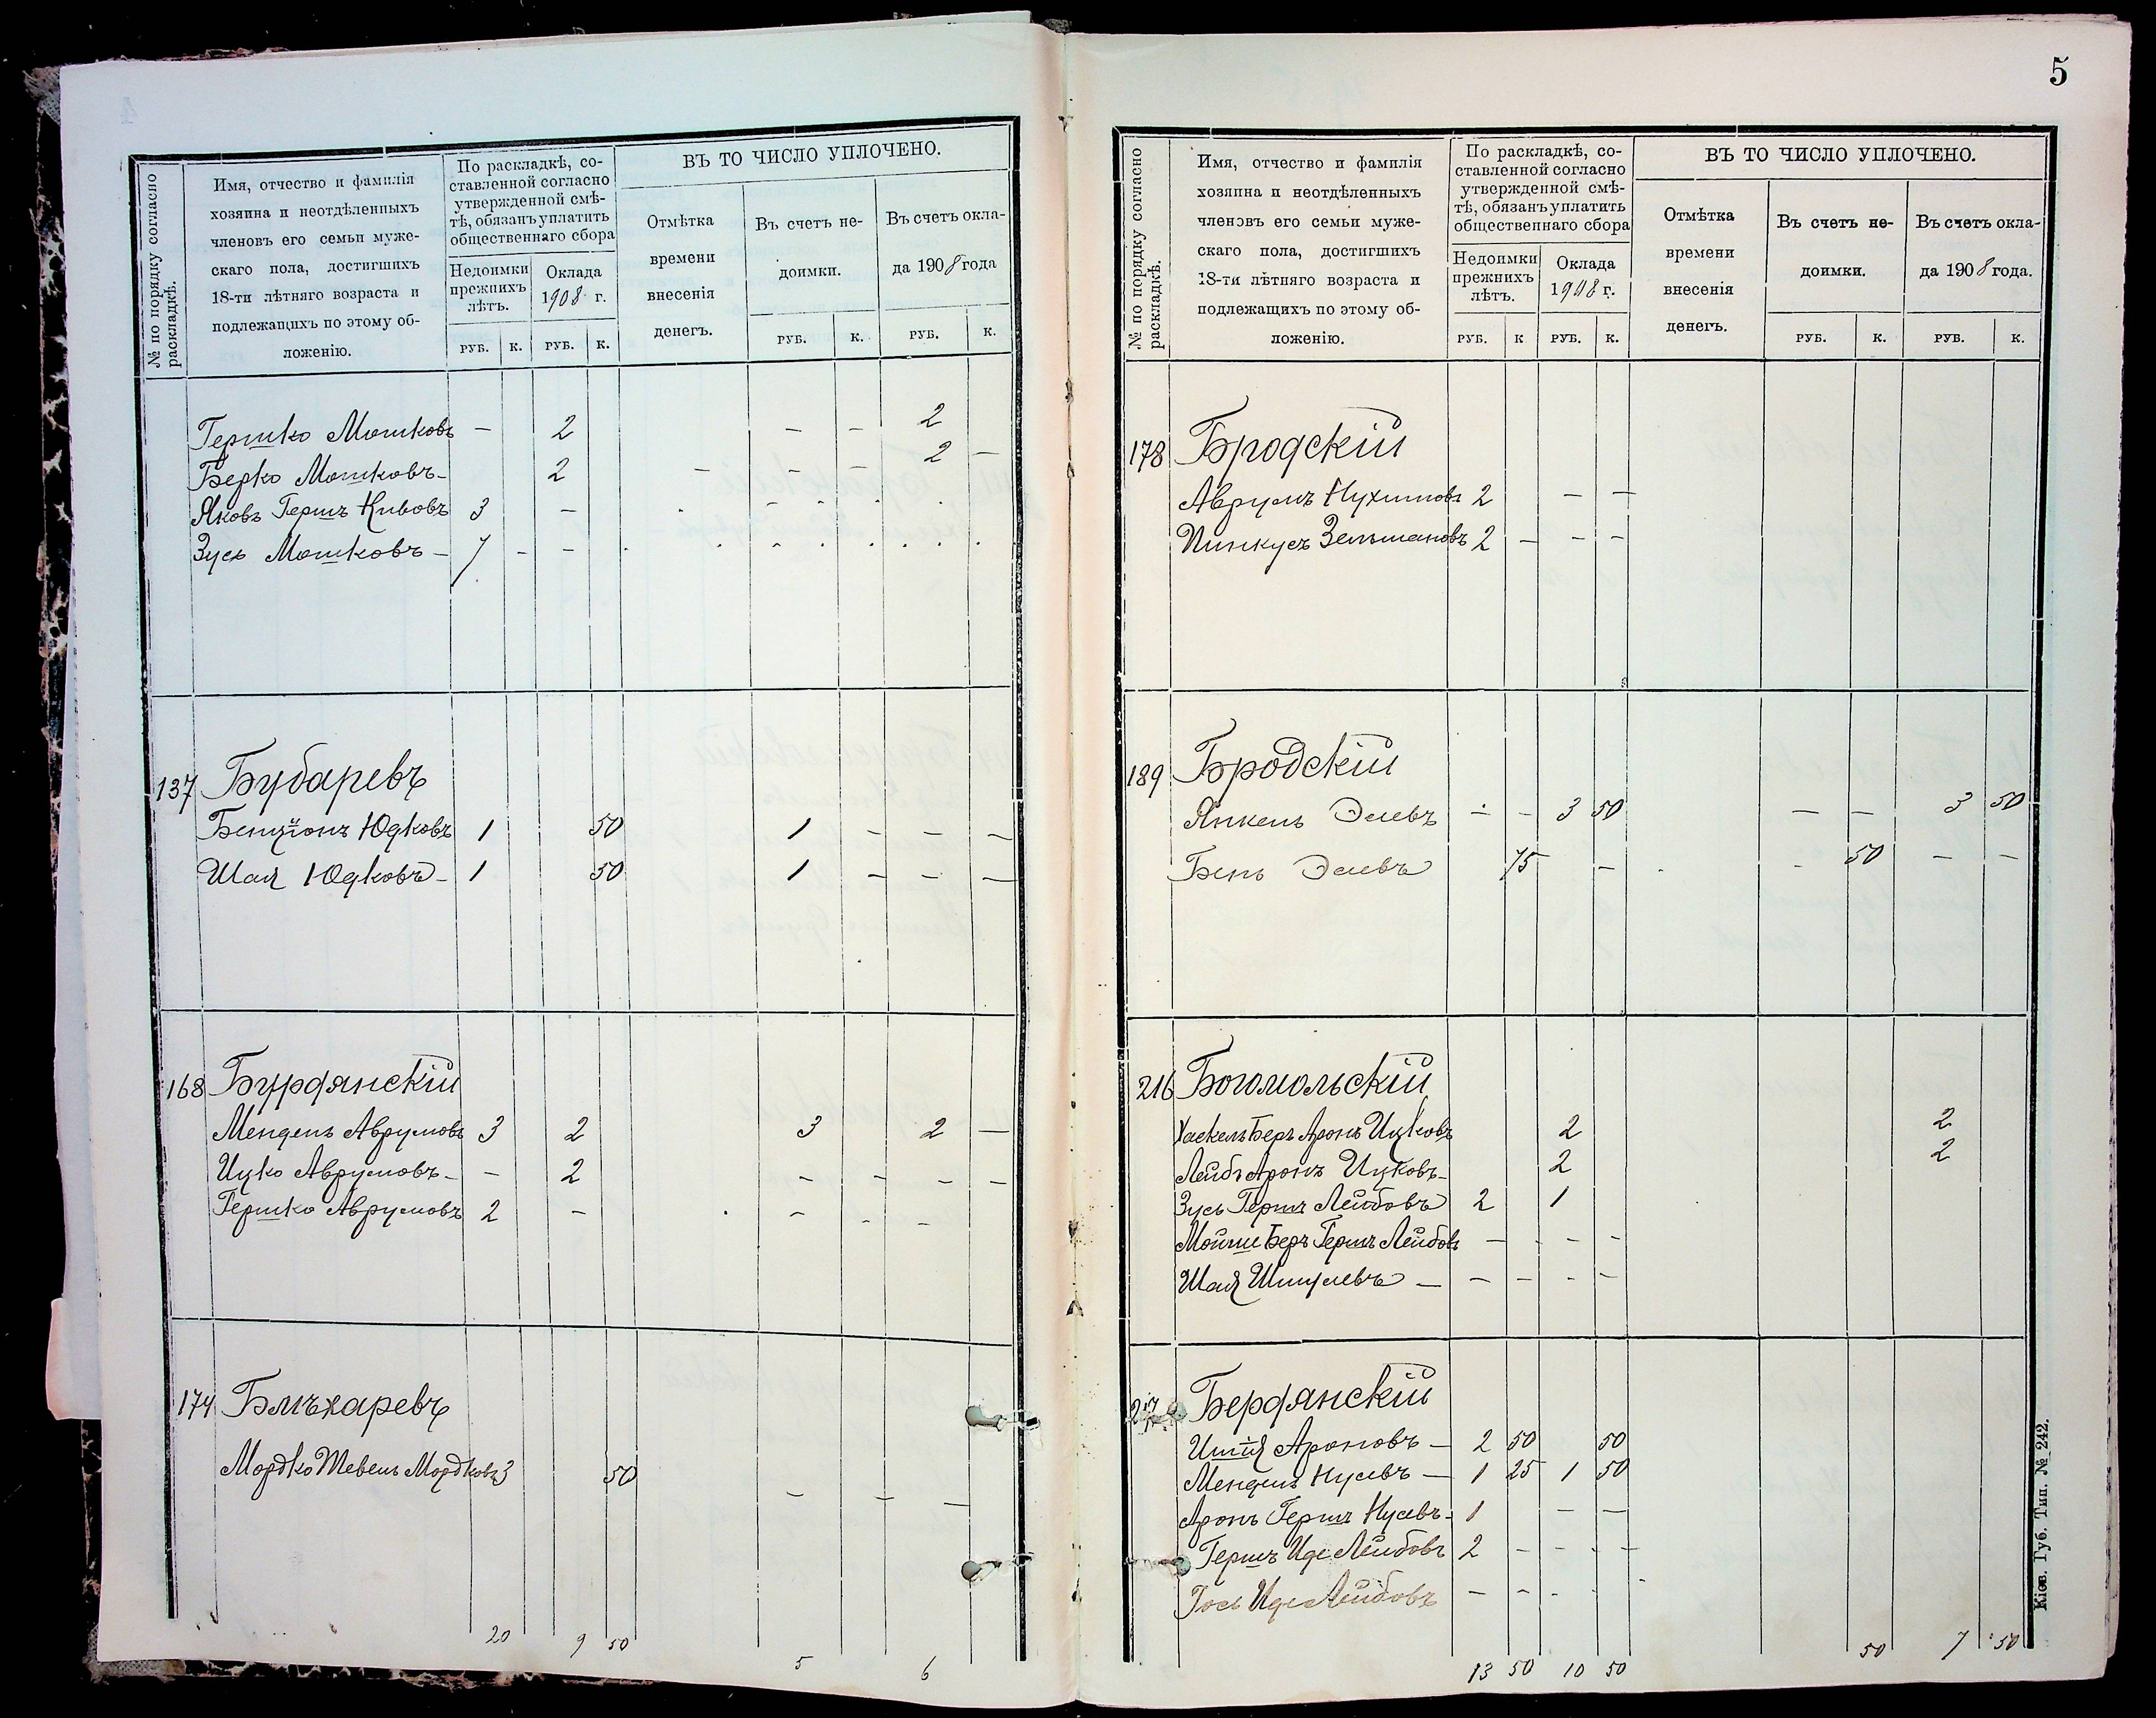 № по порядку согласно раскладкѣ.
Имя, отчество и фамилія
хозяина и неотдѣленныхъ
членовъ его семьи муже-
скаго пола, достигшихъ
18-ти лѣтняго возраста и
подлежащихъ по этому об-
ложенію.
По раскладкѣ, со-
ставленной согласно
утвержденной смѣ-
тѣ, обязанъ уплатить
общественнаго сбора
Недоимки
прежнихъ
лѣтъ.
Оклада
1908 г.
РУБ. К. РУБ. К.
ВЪ ТО ЧИСЛО УПЛОЧЕНО.
Отмѣтка
времени
внесенія
денегъ.
Въ счетъ не-
доимки.
РУБ. К.
Въ счетъ окла-
да 1908 года
РУБ. К.
Гершко Мошковъ — 2 — — 2
Берко Мошковъ — 2 — — — 2 —
Яковъ Гершъ Кивовъ 3 —
Зусь Мошковъ — 7 - -
137 Бубаревъ
Бенціонъ Юдковъ 1 50 1 — — —
Шая Юдковъ — 1 50 1 — — —
168 Бурдянскій
Мендель Аврумовъ 3 2 3 2 —
Ицко Аврумовъ — — 2 — — — —
Гершко Аврумовъ 2 — — - —
174
Мордко Тевель Мордковъ 3 50 — — —
20 9 50 5 6
5
№ по порядку согласно раскладкѣ.
Имя, отчество и фамилія
хозяина и неотдѣленныхъ
членовъ его семьи муже-
скаго пола, достигшихъ
18-ти лѣтняго возраста и
подлежащихъ по этому об-
ложенію.
По раскладкѣ, со-
ставленной согласно
утвержденной смѣ-
тѣ, обязанъ уплатить
общественнаго сбора
Недоимки
прежнихъ
лѣтъ.
Оклада
1908 г.
РУБ. К РУБ. К.
ВЪ ТО ЧИСЛО УПЛОЧЕНО.
Отмѣтка
времени
внесенія
денегъ.
Въ счетъ не-
доимки.
РУБ. К.
Въ счетъ окла-
да 1908 года.
РУБ. К.
178 Бродскій
Аврумъ Нухимовъ 2 — —
Пинкусъ Зельмановъ 2 — — —
189 Бродскій
Янкель Элевъ — - 3 50 — — 3 50
Бень Элевъ 75 — - 50 — —
216 Богомольскій
Хаскель Беръ Аронъ Ицковъ 2 2
Лейбъ Аронъ Ицковъ — 2 2
Зусь Гершъ Лейбовъ 2 1
Мойше Беръ Гершъ Лейбовъ — - - -
Шая Шмулевъ — — — - —
217 Бердянскій
Ароновъ — 2 50 50
Мендель Нусевъ — 1 25 1 50
Аронъ Гершъ Нусевъ — 1 — —
Гершъ Иде Лейбовъ 2 — — - —
Иде Лейбовъ — - - -
13 50 10 50 50 7 50
Кіев. Губ. Тип. № 242.